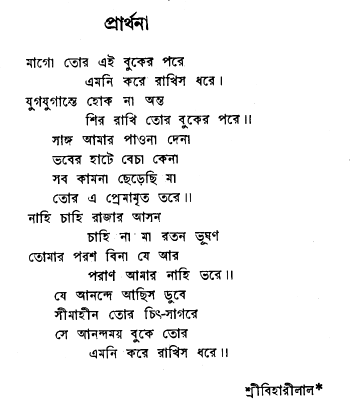 প্রার্থনা
মাগো তোর এই বুকের পরে
এমনি করে রাখিস ধরে।
যুগযুগান্তে হোক না অন্ত
শির রাখি তোর বুকের পরে।।
সাঙ্গ আমার পাওনা দেনা
ভবের হাটে বেচা কেনা
সব কামনা ছেড়েছি মা
তোর এ প্রেমামৃত তরে।।
নাহি চাহি রাজার আসন
চাহি না মা রতন ভূষণ
তোমার পরশ বিনা যে আর
পরাণ আমার নাহি ভরে।।
যে আনন্দে আছিস ডুবে
সীমাহীন তোর চিৎ-সাগরে
সে আনন্দময় বুকে তোর
এমনি করে রাখিস ধরে।।
শ্রীবিহারীলাল*